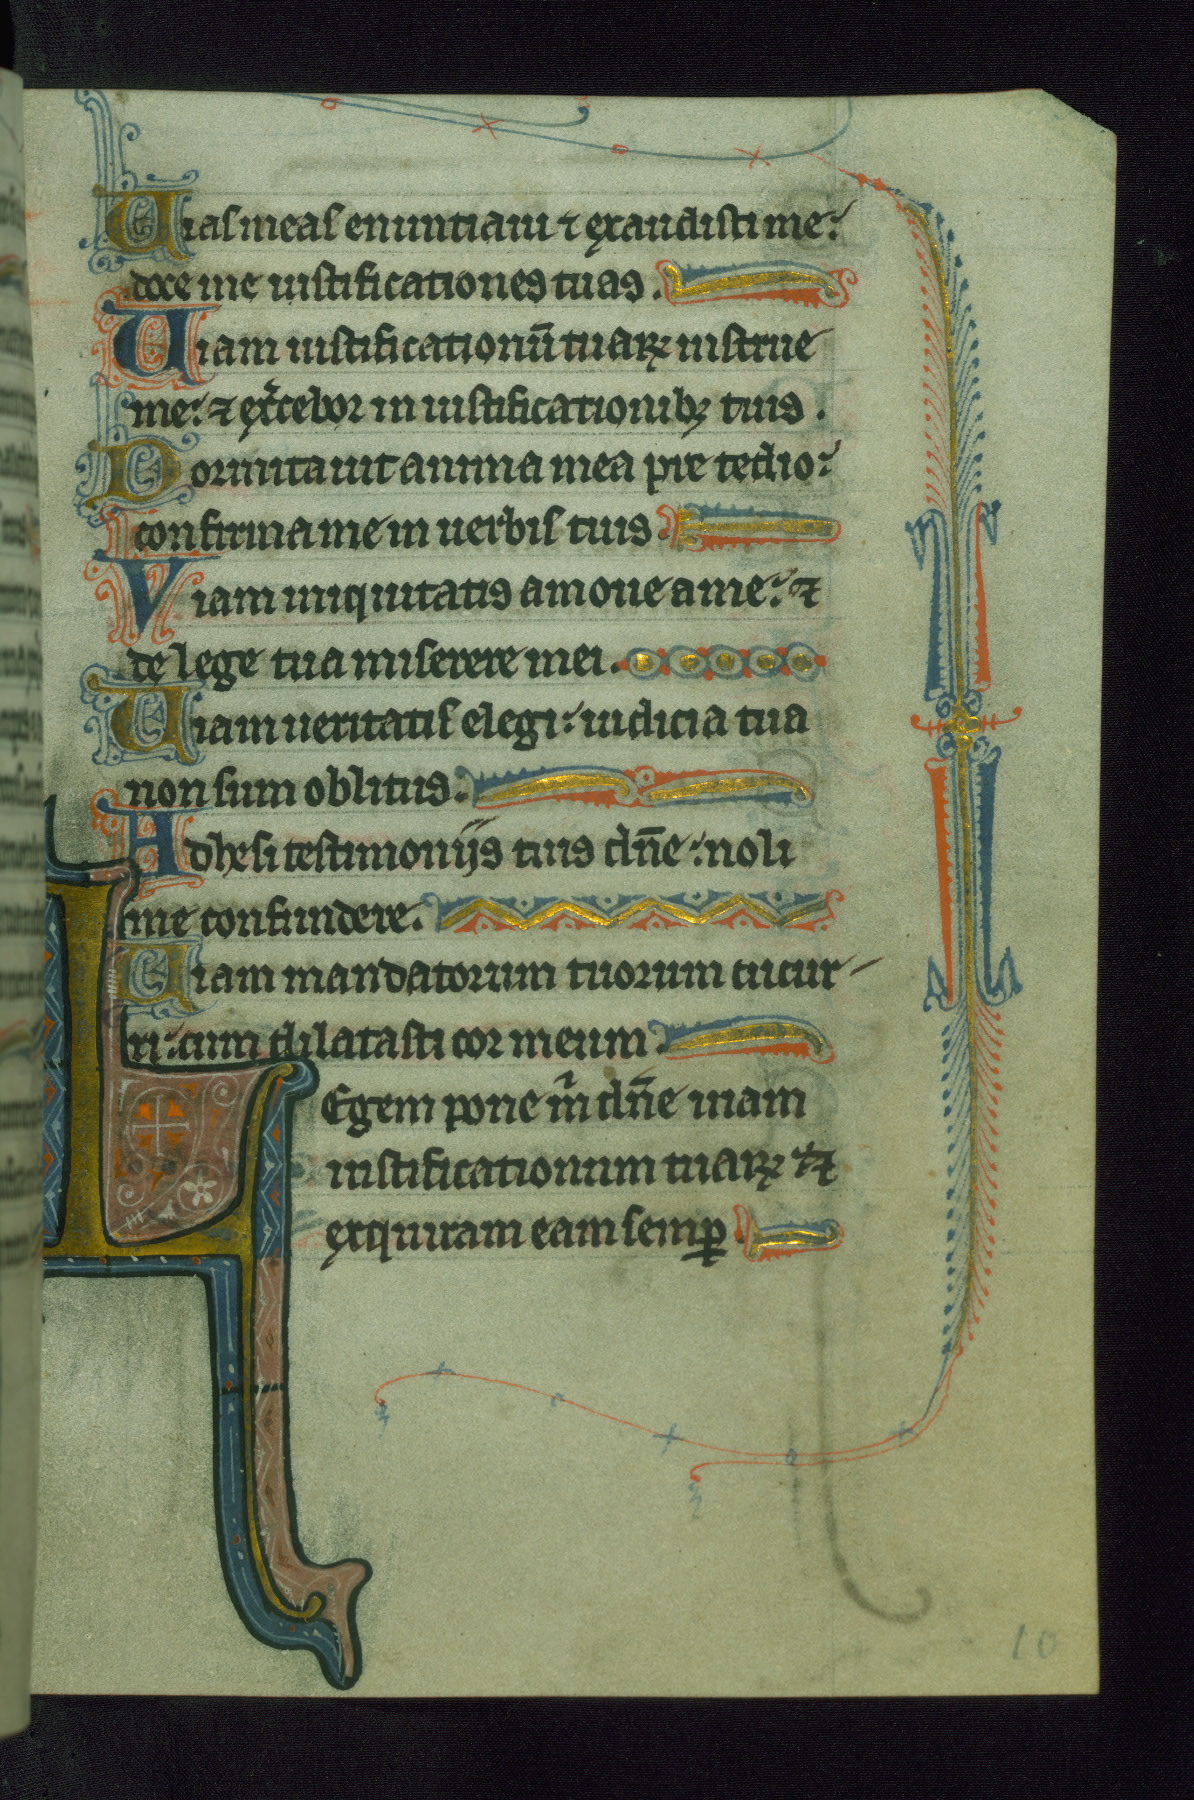 Uias meas enuntiaui ⁊ exaudisti me:
doce me iustificationes tuas.
Uiam iustificationū tuarꝝ instrue
me: ⁊ ex̾cebor in iustificationibꝫ tuis.
Dormitauit anima mea pre tedio:
confirma me in uerbis tuis.
Viam iniquitatis amoue a me: ⁊
de lege tua miserere mei.
Uiam ueritatis elegi: iudicia tua
non sum oblitus.
Adhesi testimonijs tuis dn̄e: noli
me confundere.
Uiam mandatorum tuorum cucur
ri: cum dilatasti cor meum.
Legem pone m̄ dn̄e uiam
iustificationum tuarꝝ ⁊
exquiram eam semꝑ.
10